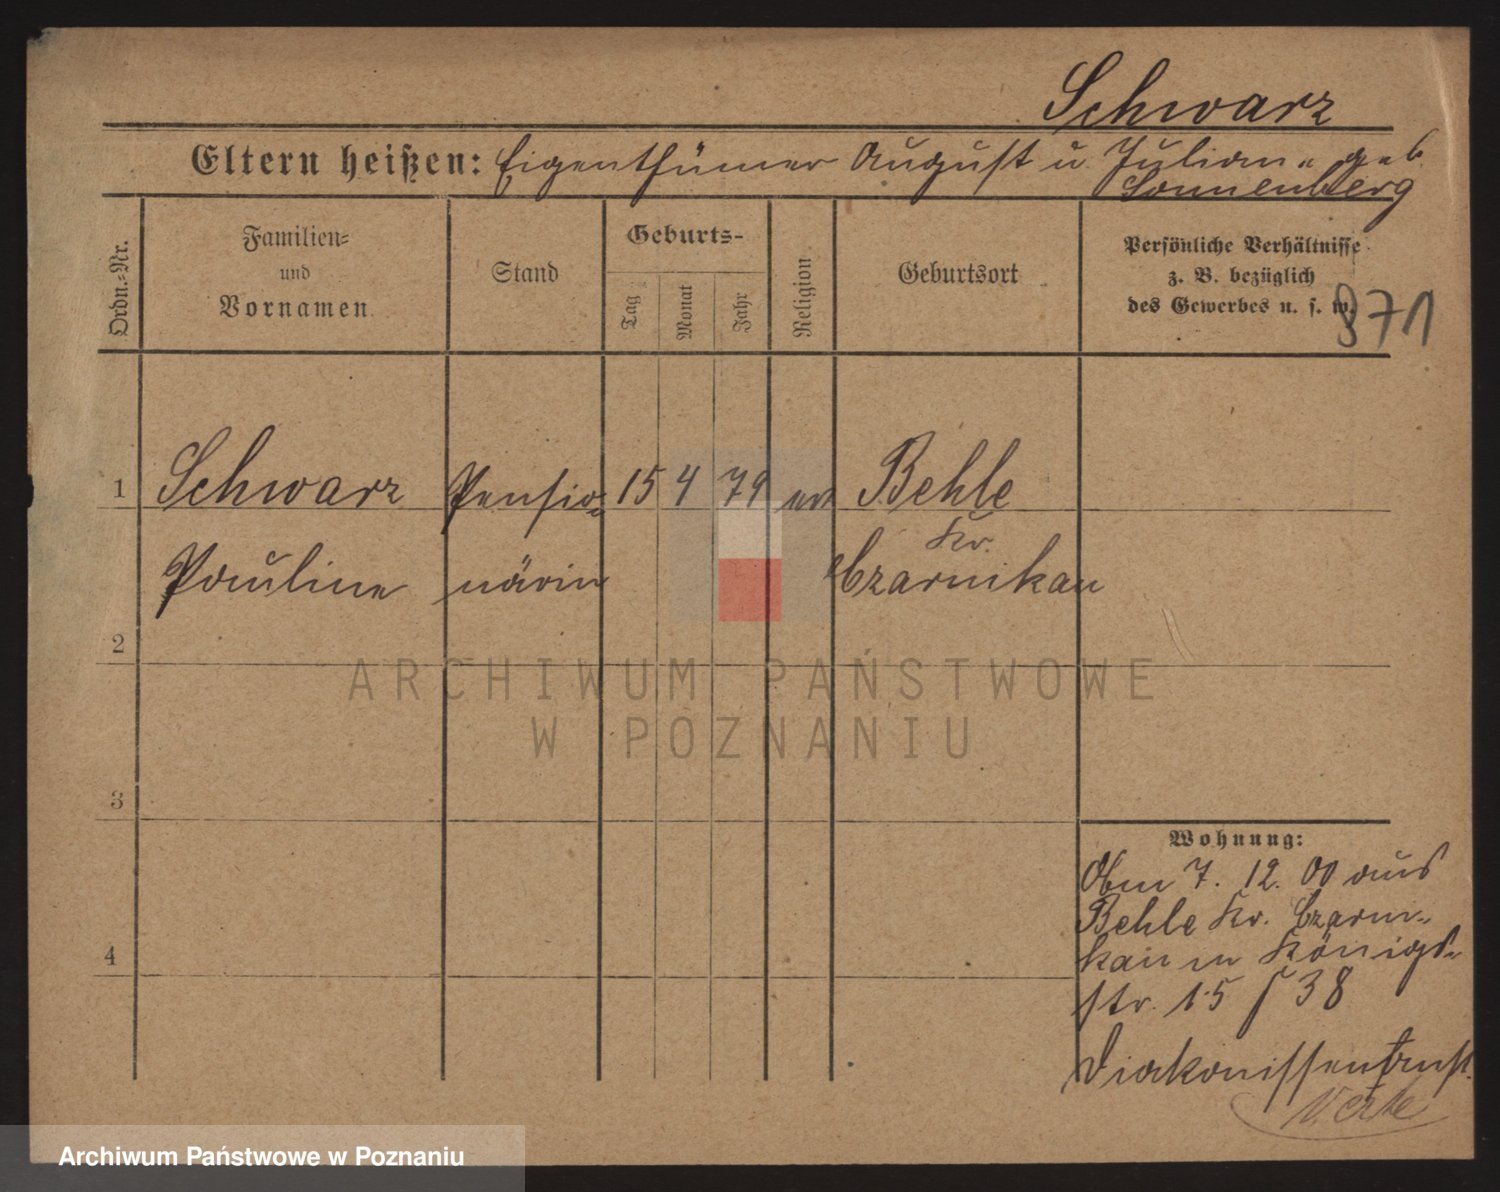 Schwarz
Eltern heißen: Eigenthümer August u. Juliane geb.
Sonnenberg
Ordn.-Nr.
Familien-
und
Vornamen
Stand
Geburts-
Tag
Monat
Jahr
Religion
Geburtsort
Persönliche Verhältnisse
z. B. bezüglich
des Gewerbes u. s. w.
871
1 Schwarz Pensio- 15 4 79 ev Behle
Kr.
Pauline närin Czarnikau
2
3
4
ARCHIWUM PAŃSTWOWE
W POZNANIU
Wohnung:
7. 12. 00 aus
Behle Kr. Czarni-
kau in Königs-
str. 15 38
Diakonissenanst.
Archiwum Państwowe w Poznaniu